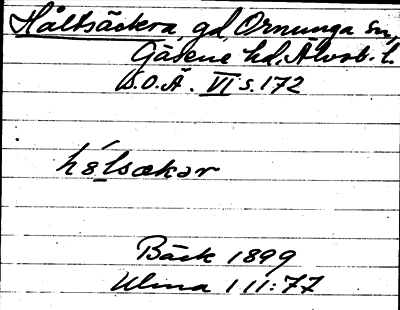 Håltsäckra, gd, Ornunga sn,
Gäsene hd, Älvsb. l.
S.O.Ä. VI s. 172
hålsækar
Bäck 1899
Ulma 111:77